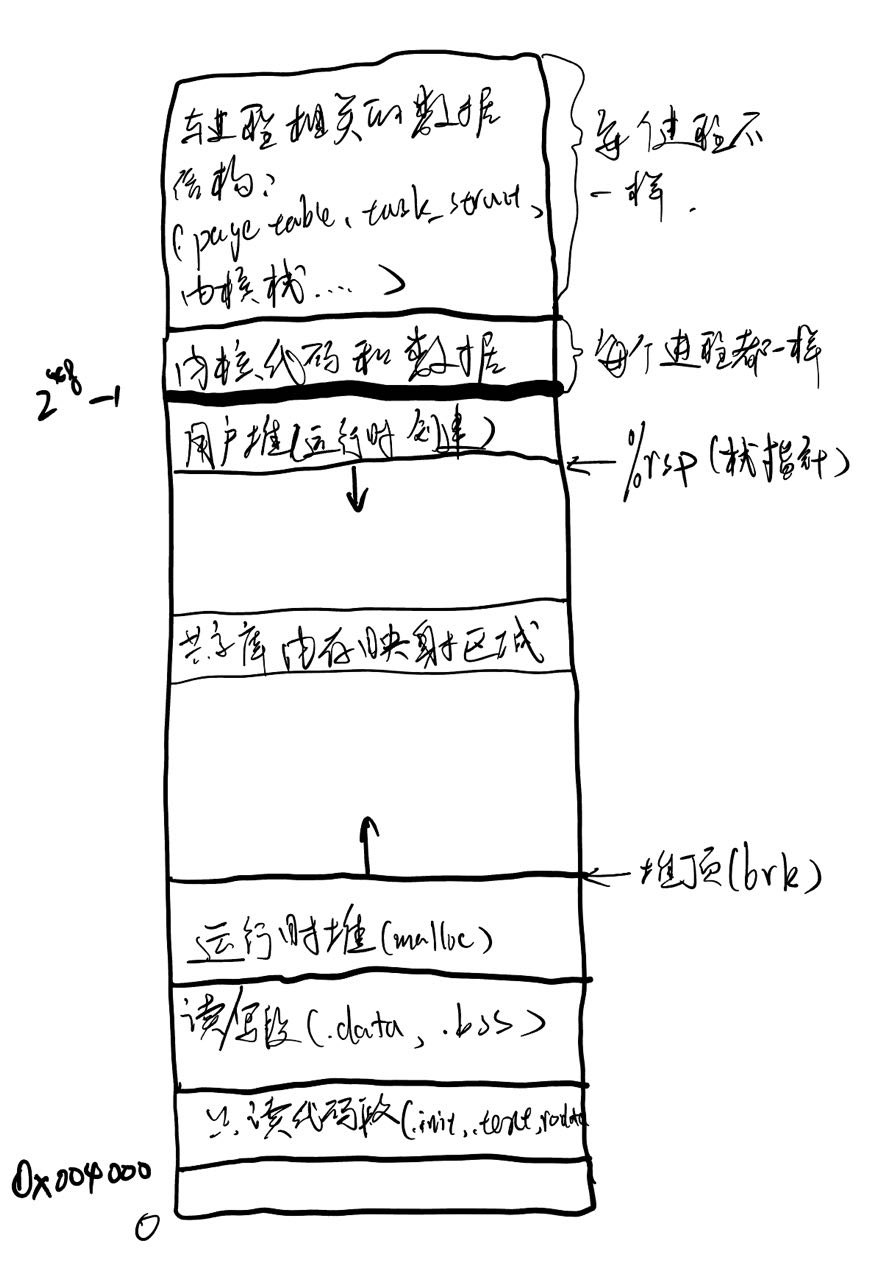 与进程相关的数据
结构:
(page table、task_struct、
内核栈....)
每个进程不
一样.
内核代码和数据
每个进程都一样
2^48-1
用户堆(运行时创建)
%rsp(栈指针)
共享库内存映射区域
堆顶(brk)
运行时堆(malloc)
读/写段(.data, .bss)
只读代码段(.init,.text,rodata
0x004000
0